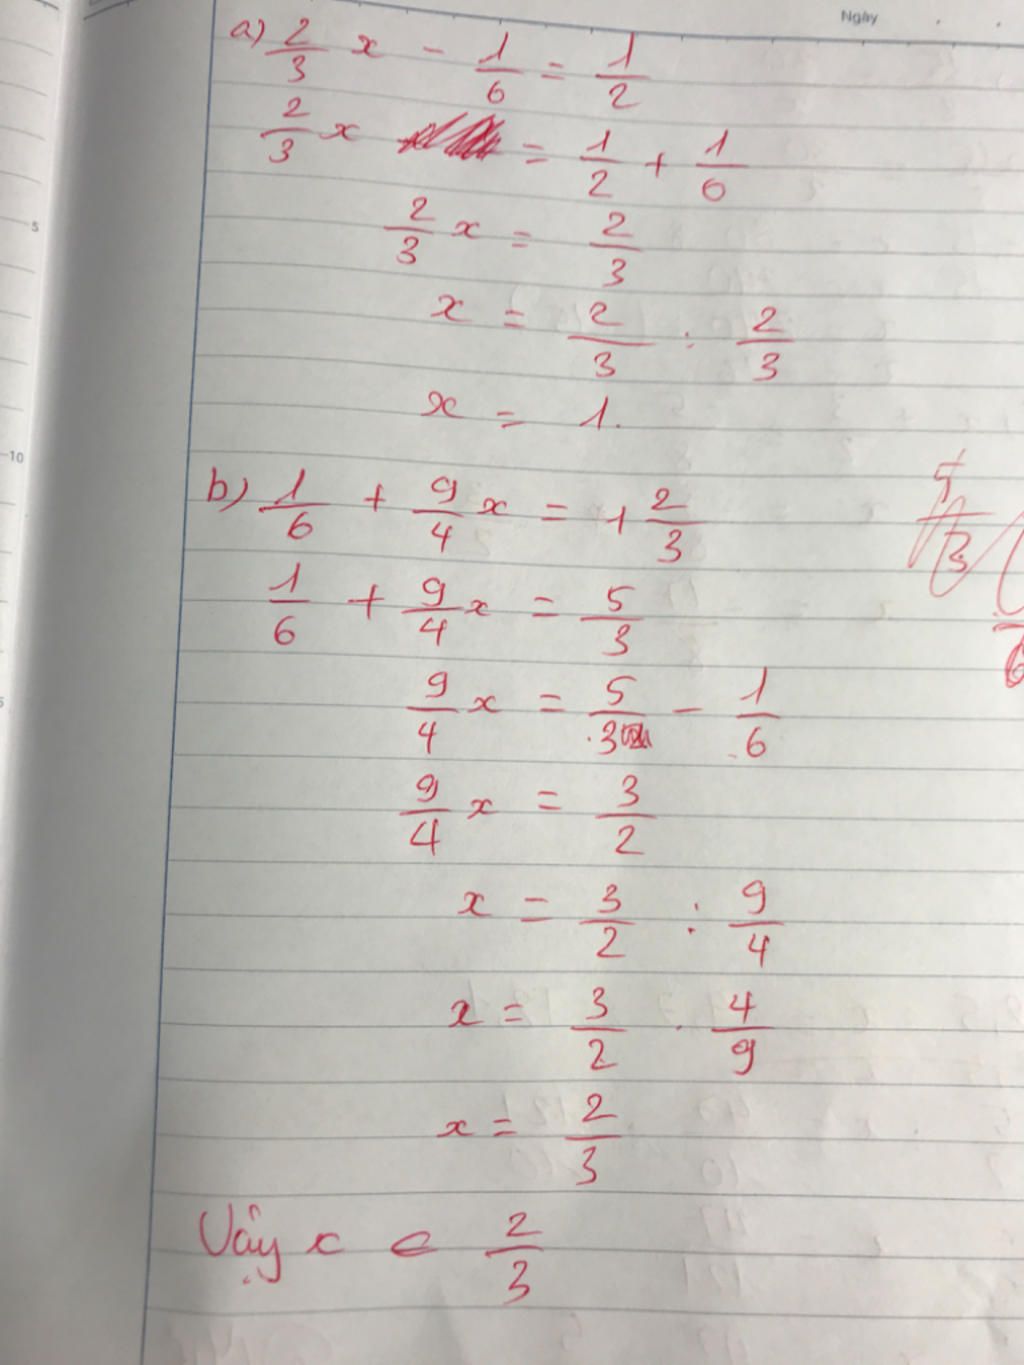 Ngày
a) 2/3 x - 1/6 = 1/2
2/3 x = 1/2 + 1/6
5
2/3 x = 2/3
x = 2/3 : 2/3
x = 1.
10
b) 1/6 + 9/4 x = 1 2/3
1/6 + 9/4 x = 5/3
9/4 x = 5/3 - 1/6
9/4 x = 3/2
x = 3/2 : 9/4
x = 3/2 . 4/9
x = 2/3
Vậy x ∈ 2/3